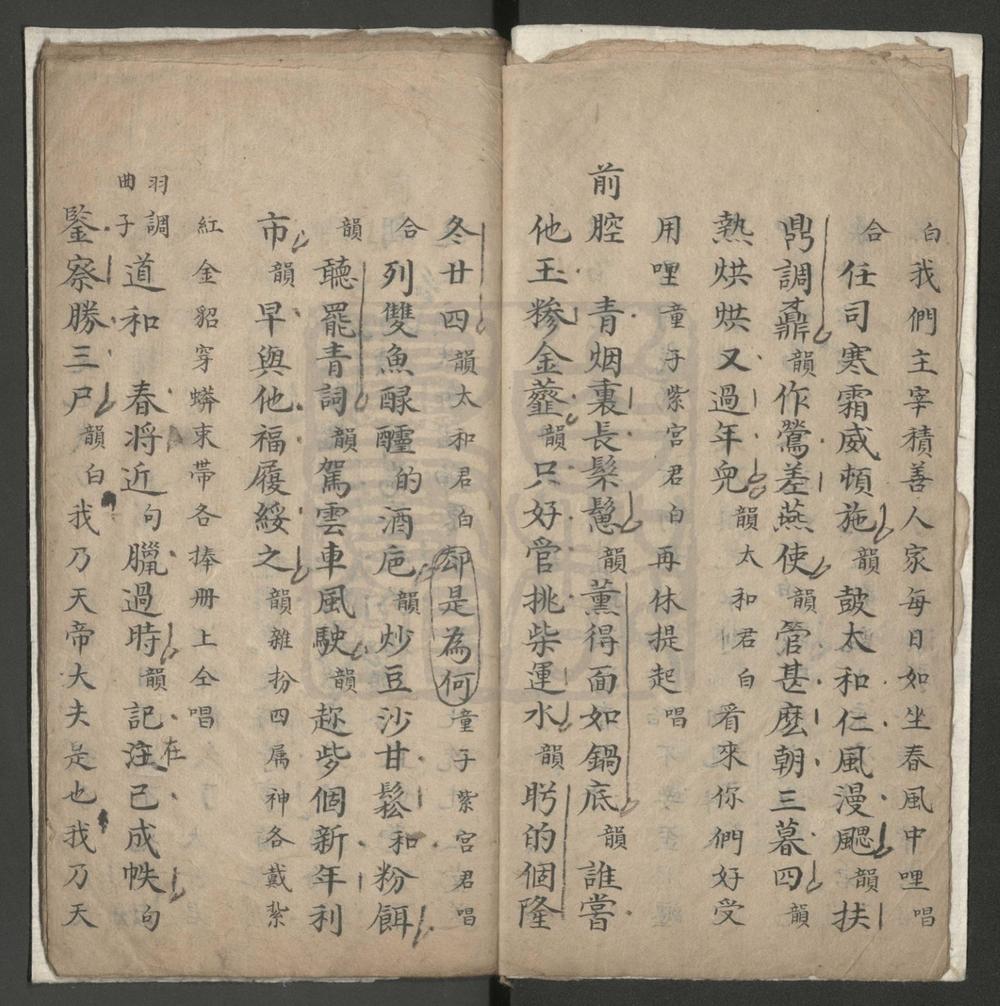 白我們主宰積善人家每日如坐春風中哩唱
合任司寒霜威頓施韻鼓太和仁風漫颸韻扶
鼎調鼐韻作鶯差燕使韻管甚麽朝三暮四韻
熱烘烘又過年兜韻太和君白看來你們好受
用哩童子紫宮君白再休提起唱
前腔 青烟裏長髹鬕韻薰得面如鍋底韻誰嘗
他玉糝金虀韻只好管挑柴運水韻盻的個隆
冬廿四韻太和君白却是為何童子紫宮君唱
合列雙魚醁醽的酒巵韻炒豆沙甘鬆和粉餌
韻聽罷青詞韻駕雲車風駛韻趂些個新年利
市韻早與他福履綏之韻雜扮四属神各戴紮
紅金貂穿蟒束帶各捧册上仝唱
羽調曲子道和 春将近句臘過時韻記注在已成帙句
鍳察勝三尸韻白我乃天帝大夫是也我乃天